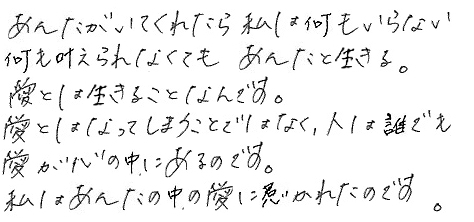 あんたがいてくれたら 私は何もいらない
何も叶えられなくても あんたと生きる。
愛とは生きることなんです。
愛とはなってしまうことではなく、人は誰でも
愛が心の中にあるのです。
私はあんたの中の愛に惹かれたのです 。